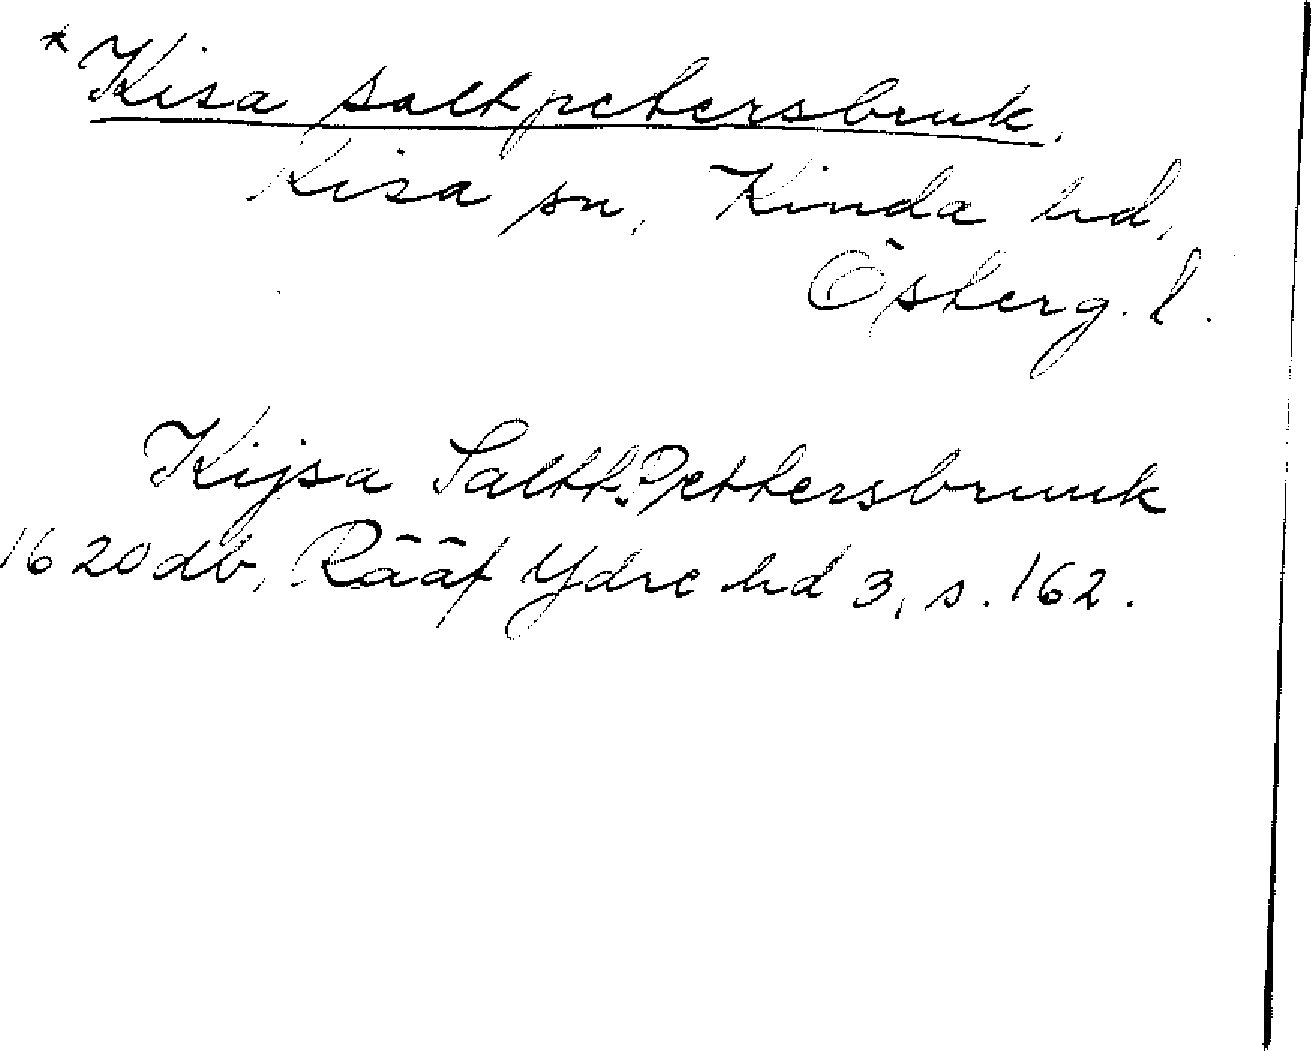 *Kisa saltpetersbruk,
Kisa sn, Kinda hd,
Österg. l.
Kijsa Saltt.Pettersbruuk
1620 db, Rääf Ydre hd 3, s. 162.